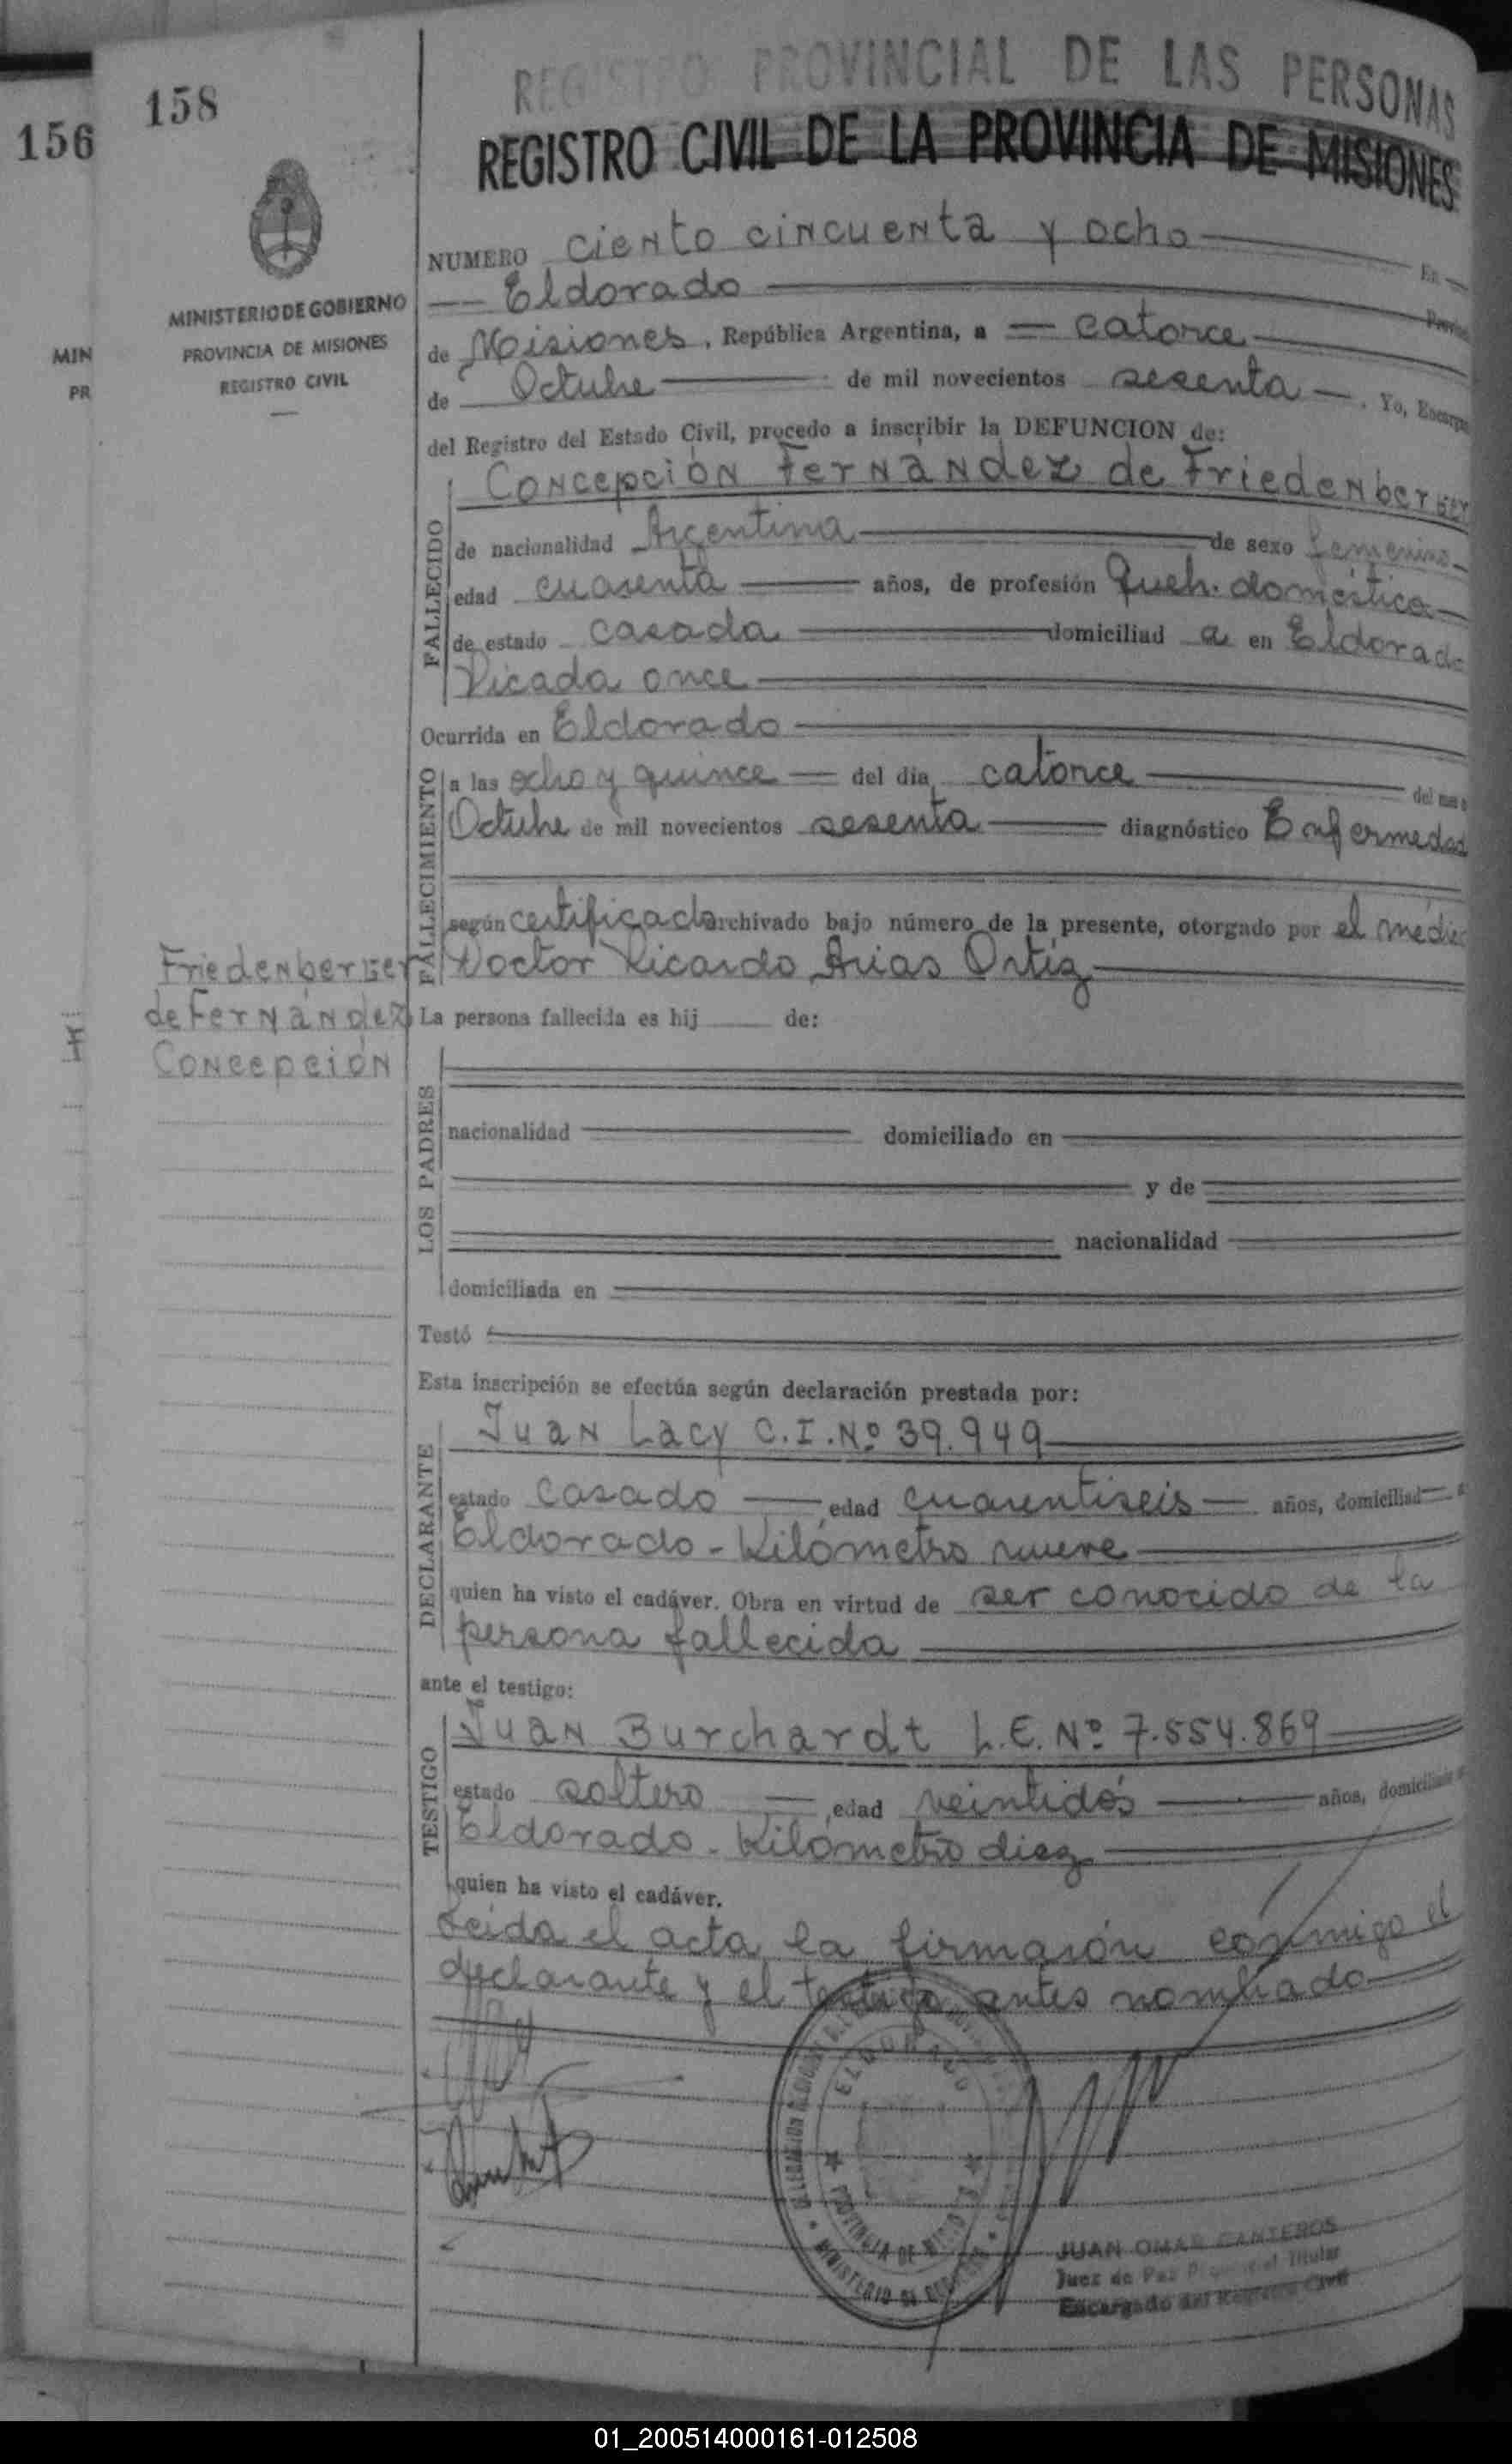 158
156
MINISTERIO DE GOBIERNO
PROVINCIA DE MISIONES
REGISTRO CIVIL
MIN
PR
REGISTRO PROVINCIAL DE LAS PERSONAS
REGISTRO CIVIL DE LA PROVINCIA DE MISIONES
NUMERO ciento cincuenta y ocho En
Eldorado
de Misiones, República Argentina, a catorce
de Octubre de mil novecientos sesenta. Yo,
del Registro del Estado Civil, procedo a inscribir la DEFUNCION de:
FALLECIDO
Concepción Fernández de Friedenberger
de nacionalidad Argentina de sexo femenino
edad cuarenta años, de profesión Queh. doméstica
de estado casada domiciliad a en Eldorado
Picada once
FALLECIMIENTO
Ocurrida en Eldorado
a las ocho y quince del dia catorce del mes
Octubre de mil novecientos sesenta diagnóstico Enfermedad
según certificado archivado bajo número de la presente, otorgado por el médico
Doctor Ricardo Arias Ortiz
Friedenberger
de Fernández
Concepción
La persona fallecida es hij de:
LOS PADRES
nacionalidad domiciliado en
y de
nacionalidad
domiciliada en
Testó
Esta inscripción se efectúa según declaración prestada por:
DECLARANTE
Juan Lacy C.I.Nº 39.949
estado casado edad cuarentiseis años, domiciliad
Eldorado - Kilómetro nueve
quien ha visto el cadáver. Obra en virtud de ser conocido de la
persona fallecida
ante el testigo:
TESTIGO
Juan Burchardt L.E. Nº 7.554.869
estado soltero edad veintidós años,
Eldorado - Kilómetro diez
quien ha visto el cadáver.
Leida el acta la firmarón conmigo el
declarante y el testigo antes nombrado
ELDORADO
PROVINCIA DE MISIONES
MINISTERIO DE GOBIERNO
JUAN OMAR CANTEROS
Juez de Paz Titular
Encargado del Registro Civil
01_200514000161-012508